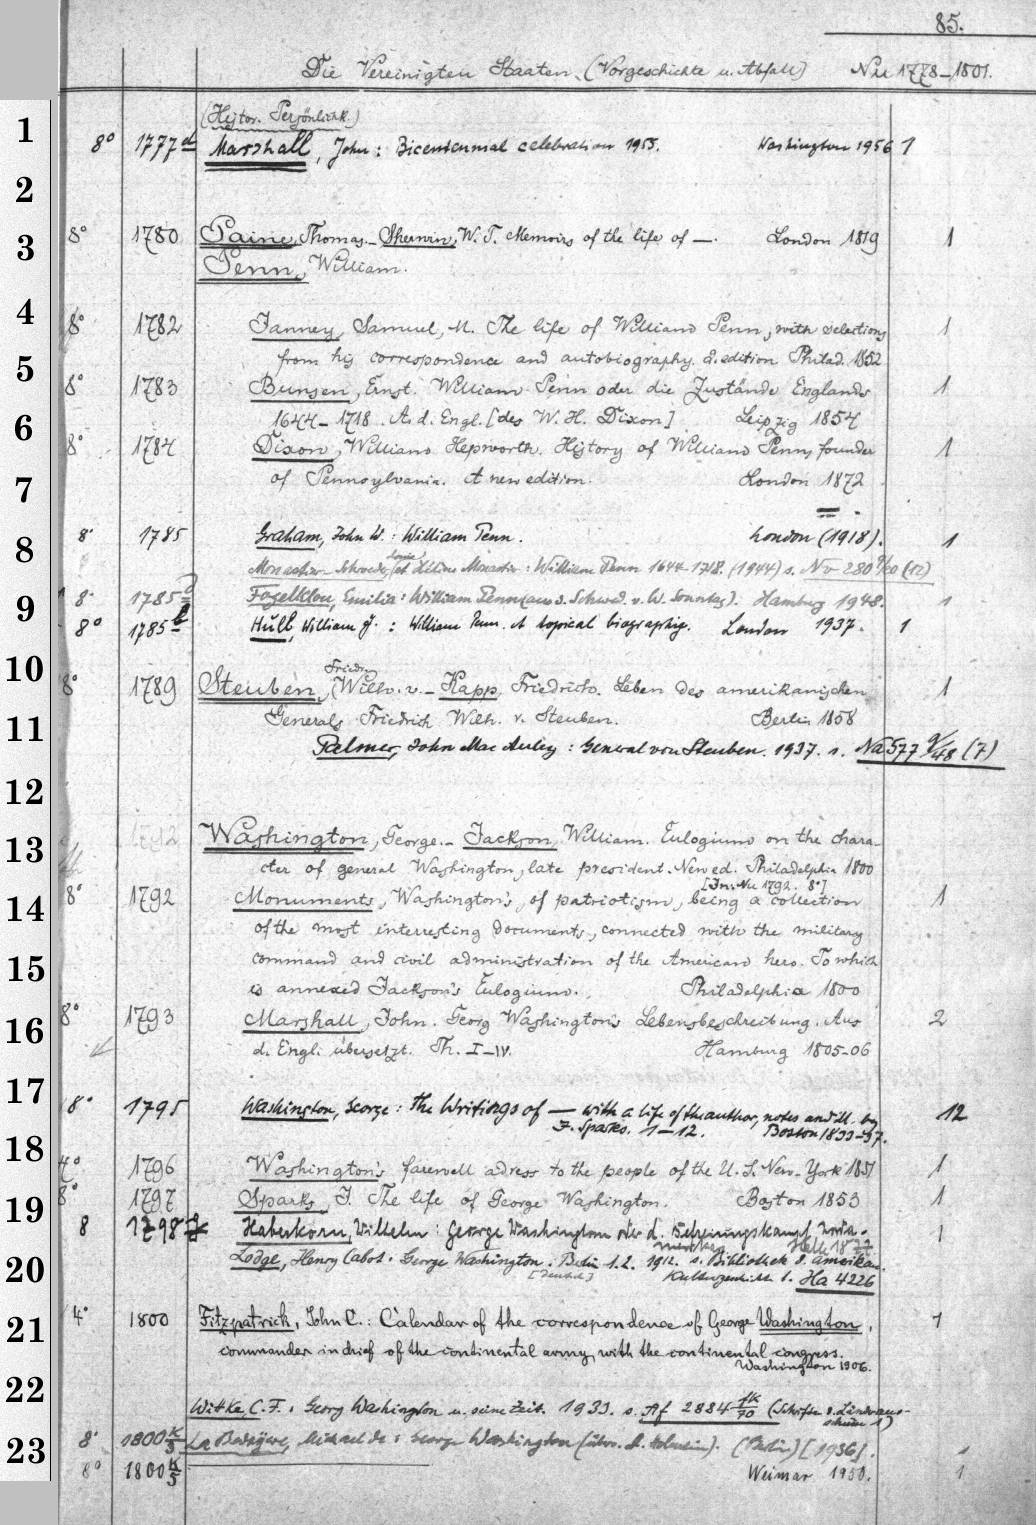 85.
Die Vereinigten Staaten. (Vorgeschichte u. Abfall) Nu 1778-1801.
1
(Histor. Persönlichk.)
8° 1777 Marshall, John: Bicentennial celebration 1955. Washington 1956 1
2
3
8° 1780 Paine, Thomas.- Sherwin, W. T. Memoirs of the life of —. London 1819 1
Penn, William.
4
8° 1782 Janney, Samuel, M. The life of William Penn, with selections 1
from his correspondence and autobiography. 2. edition Philad. 1852
5
8° 1783 Bunsen, Ernst. William Penn oder die Zustände Englands 1
6
1644-1718. A. d. Engl. [des W. H. Dixon] Leipzig 1854
8° 1784 Dixon, William Hepworth. History of William Penn, founder 1
7
of Pennsylvania. A new edition. London 1872
8
8° 1785 Graham, John W.: William Penn. London (1918). 1
Monastier-Schroeder, et Hélène Monastier: William Penn 1644-1718. (1944) s. Nv 280 (12)
9
8° 1785 Fogelklou, Emilia: William Penn (aus d. Schwed. v. W. Sonntag). Hamburg 1948. 1
8° 1785 b Hull, William J.: William Penn. A topical biography. London 1937. 1
10
Friedr.
8° 1789 Steuben, (Wilh. v.- Kapp, Friedrich. Leben des amerikanischen 1
11
Generals Friedrich Wilh. v. Steuben. Berlin 1858
Palmer, John Mac Auley: General von Steuben. 1937. s. Na 577 9/48 (7)
12
13
1792 Washington, George.- Jackson, William. Eulogium on the chara-
cter of general Washington, late president. New ed. Philadelphia 1800
[In: Nu 1792. 8°]
14
8° 1792 Monuments, Washington's, of patriotism, being a collection 1
of the most interresting documents, connected with the military
15
command and civil administration of the American hero. To which
is annexed Jackson's Eulogium. Philadelphia 1800
16
8° 1793 Marshall, John. Georg Washington's Lebensbeschreibung. Aus 2
d. Engl. übersetzt. Th. I-IV. Hamburg 1805-06
17
8° 1795 Washington, George: The Writings of — with a life of the author, notes and ill. by 12
J. Sparks. 1-12. Boston 1833-37.
18
4° 1796 Washington's farewell adress to the people of the U. S. New-York 1851 1
19
8° 1797 Sparks, J. The life of George Washington. Boston 1853 1
8 1798 Haberkorn, Wilhelm: George Washington oder d. Befreiungskampf 1
20
Lodge, Henry Cabot: George Washington. Berlin 1.2. 1912. s. Bibliothek d. amerikan.
[Deutsch] s. Ha 4226
21
4° 1800 Fitzpatrick, John C.: Calendar of the correspondence of George Washington, 1
commander in chief of the continental army, with the continental congress.
Washington 1906.
22
Wittke, C. F.: Georg Washington u. seine Zeit. 1933. s. Af 2884 (Schrift
23
8° 1800 K/3 La Bedoyere, Michael de: George Washington (Berlin) [1936]. 1
8° 1800 K/5 Weimar 1950. 1